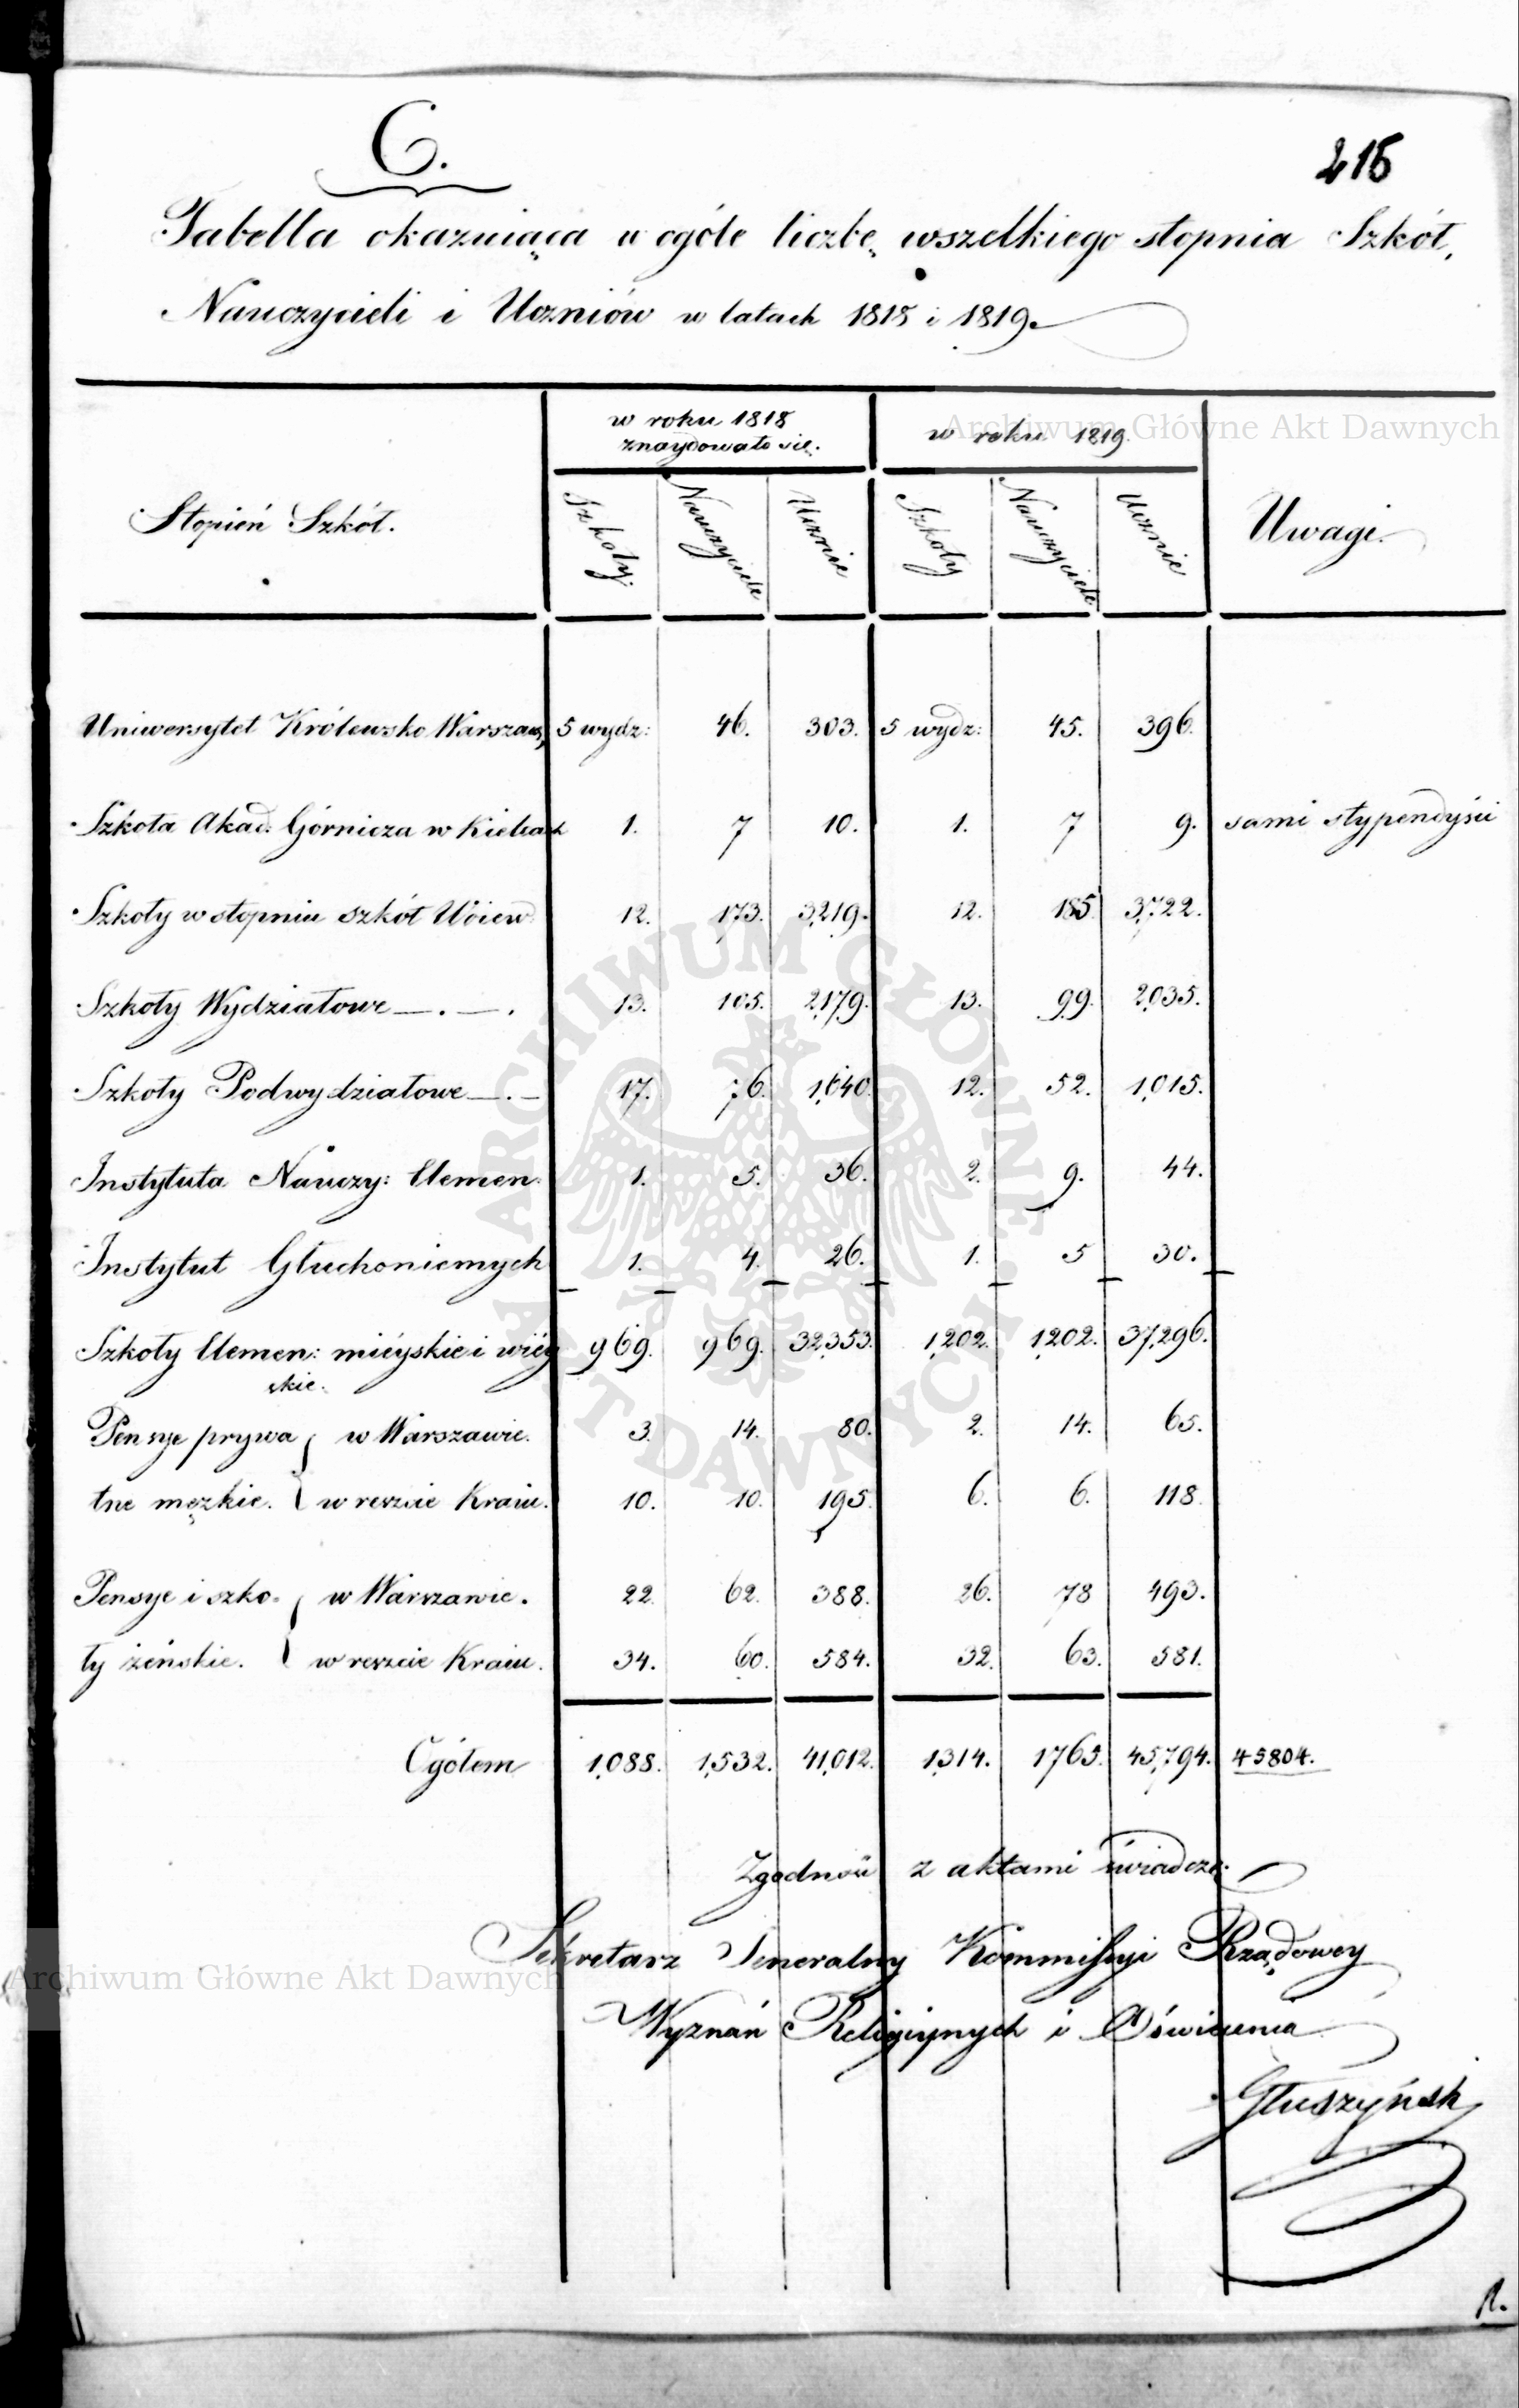 C.
215
Tabella okazuiąca w ogóle liczbę wszelkiego stopnia Szkół,
Nauczycieli i Uczniów w latach 1818 i 1819.
Stopień Szkół. w roku 1818 znaydowało się. w roku 1819. Uwagi.
Szkoły. Nauczyciele Ucznie Szkoły Nauczyciele Ucznie
Uniwersytet Królewsko Warszaws. 5 wydz: 46. 303. 5 wydz: 45. 396.
Szkoła Akad. Górnicza w Kielcach 1. 7 10. 1. 7 9. sami stypendyści
Szkoły w stopniu szkół Woiew. 12. 173. 3,219. 12. 185 3,722.
Szkoły Wydziałowe —.—. 13. 105. 2,179. 13. 99. 2,035.
Szkoły Podwydziałowe —.— 17. 76. 1,640. 12. 52. 1,015.
Instytuta Nauczy: Elemen: 1. 5. 36. 2. 9. 44.
Instytut Głuchoniemych 1. 4. 26. 1. 5 30.
Szkoły Elemen: mieyskie i wiey 969. 969. 32,353. 1,202. 1,202. 37,296.
skie.
Pensye prywa w Warszawie. 3. 14. 80. 2. 14. 65.
tne męzkie. w reszcie Kraiu. 10. 10. 195. 6. 6. 118.
Pensye i szko- w Warszawie. 22. 62. 388. 26. 78 493.
ły żeńskie. w reszcie Kraiu. 34. 60. 584. 32. 63. 581.
Ogółem 1,088. 1,532. 41,012. 1,314. 1765. 45,794. 45804.
Zgodność z aktami świadczę.
Sekretarz Jeneralny Kommissyi Rządowey
Wyznań Religiynych i Oświecenia
Głuszyński
1.
Archiwum Główne Akt Dawnych
ARCHIWUM GŁÓWNE AKT DAWNYCH
Archiwum Główne Akt Dawnych